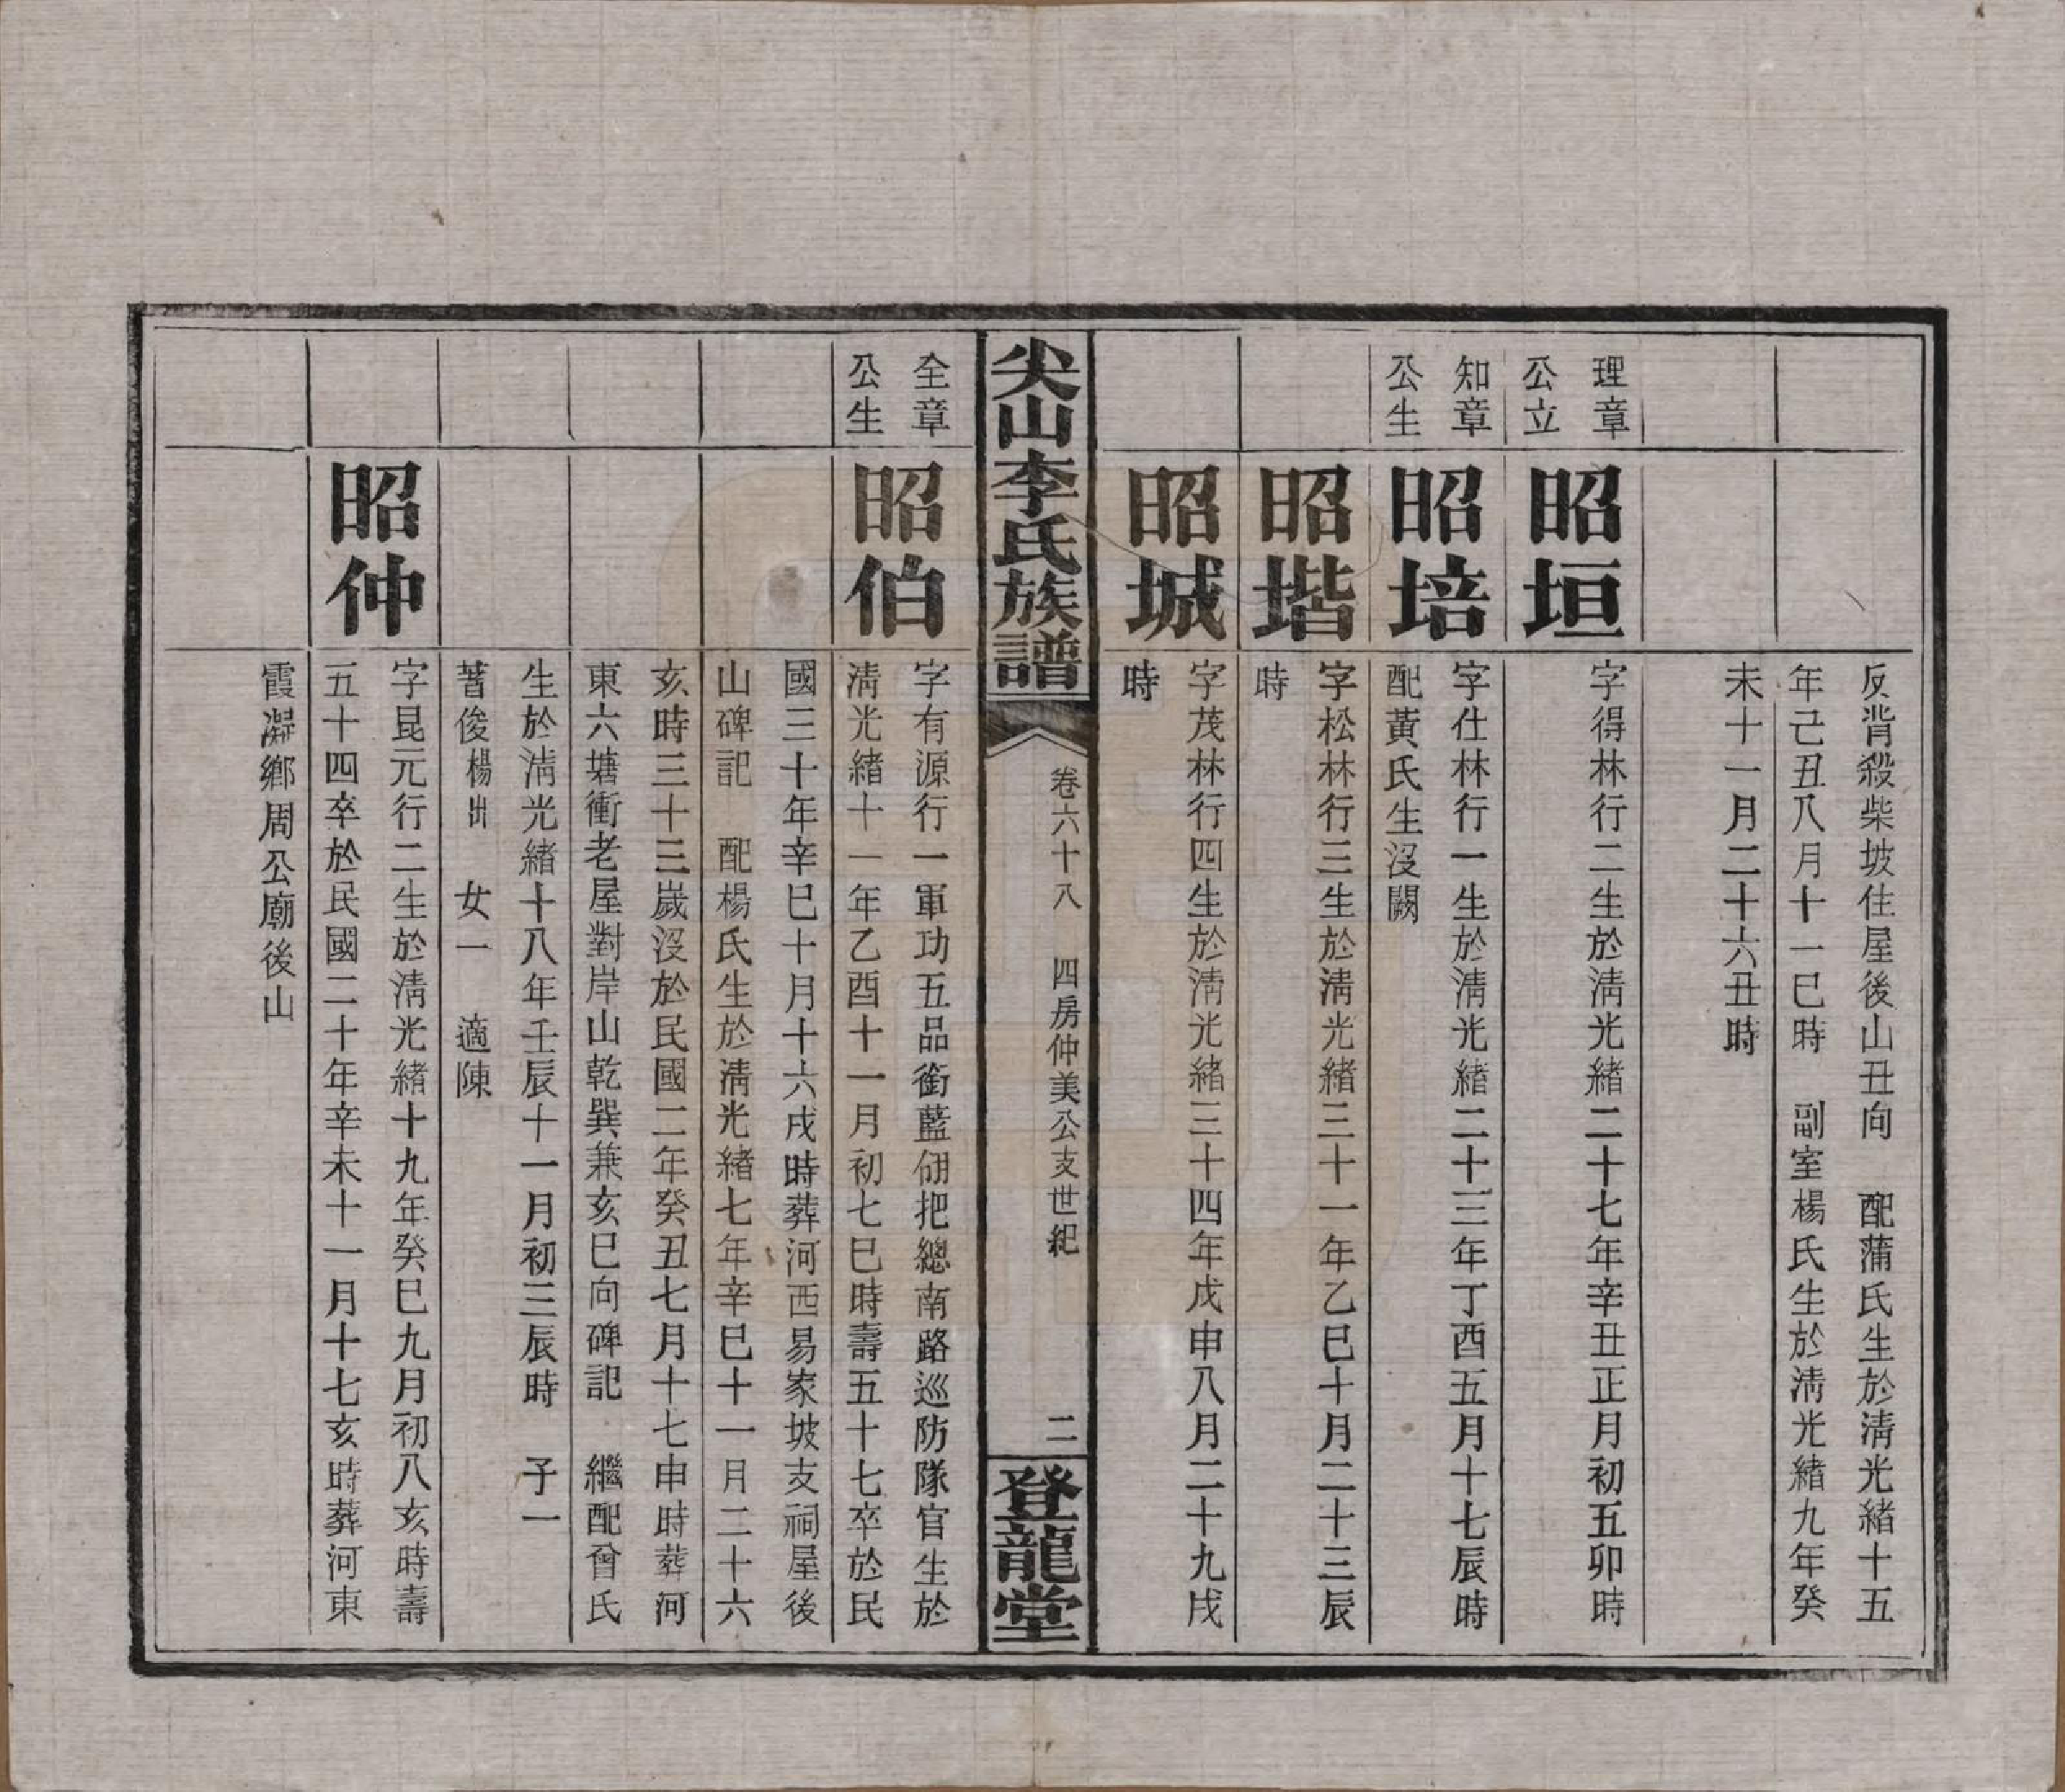 反背殺柴坡住屋後山丑向　配蒲氏生於清光緒十五
年己丑八月十一巳時　副室楊氏生於清光緒九年癸
未十一月二十六丑時
理章
公立
昭垣
字得林行二生於清光緒二十七年辛丑正月初五卯時
知章
公生
昭培
字仕林行一生於清光緒二十三年丁酉五月十七辰時
配黃氏生沒闕
昭堦
字松林行三生於清光緒三十一年乙巳十月二十三辰
時
昭城
字茂林行四生於清光緒三十四年戊申八月二十九戌
時
尖山李氏族譜
卷六十八　四房仲美公支世紀
二
登龍堂
全章
公生
昭伯
字有源行一軍功五品銜藍翎把總南路巡防隊官生於
清光緒十一年乙酉十一月初七巳時壽五十七卒於民
國三十年辛巳十月十六戌時葬河西易家坡支祠屋後
山碑記　配楊氏生於清光緒七年辛巳十一月二十六
亥時三十三歲沒於民國二年癸丑七月十七申時葬河
東六塘衝老屋對岸山乾巽兼亥巳向碑記　繼配曾氏
生於清光緒十八年壬辰十一月初三辰時　子一
蓍俊楊出　女一　適陳
昭仲
字昆元行二生於清光緒十九年癸巳九月初八亥時壽
五十四卒於民國二十年辛未十一月十七亥時葬河東
霞凝鄉周公廟後山